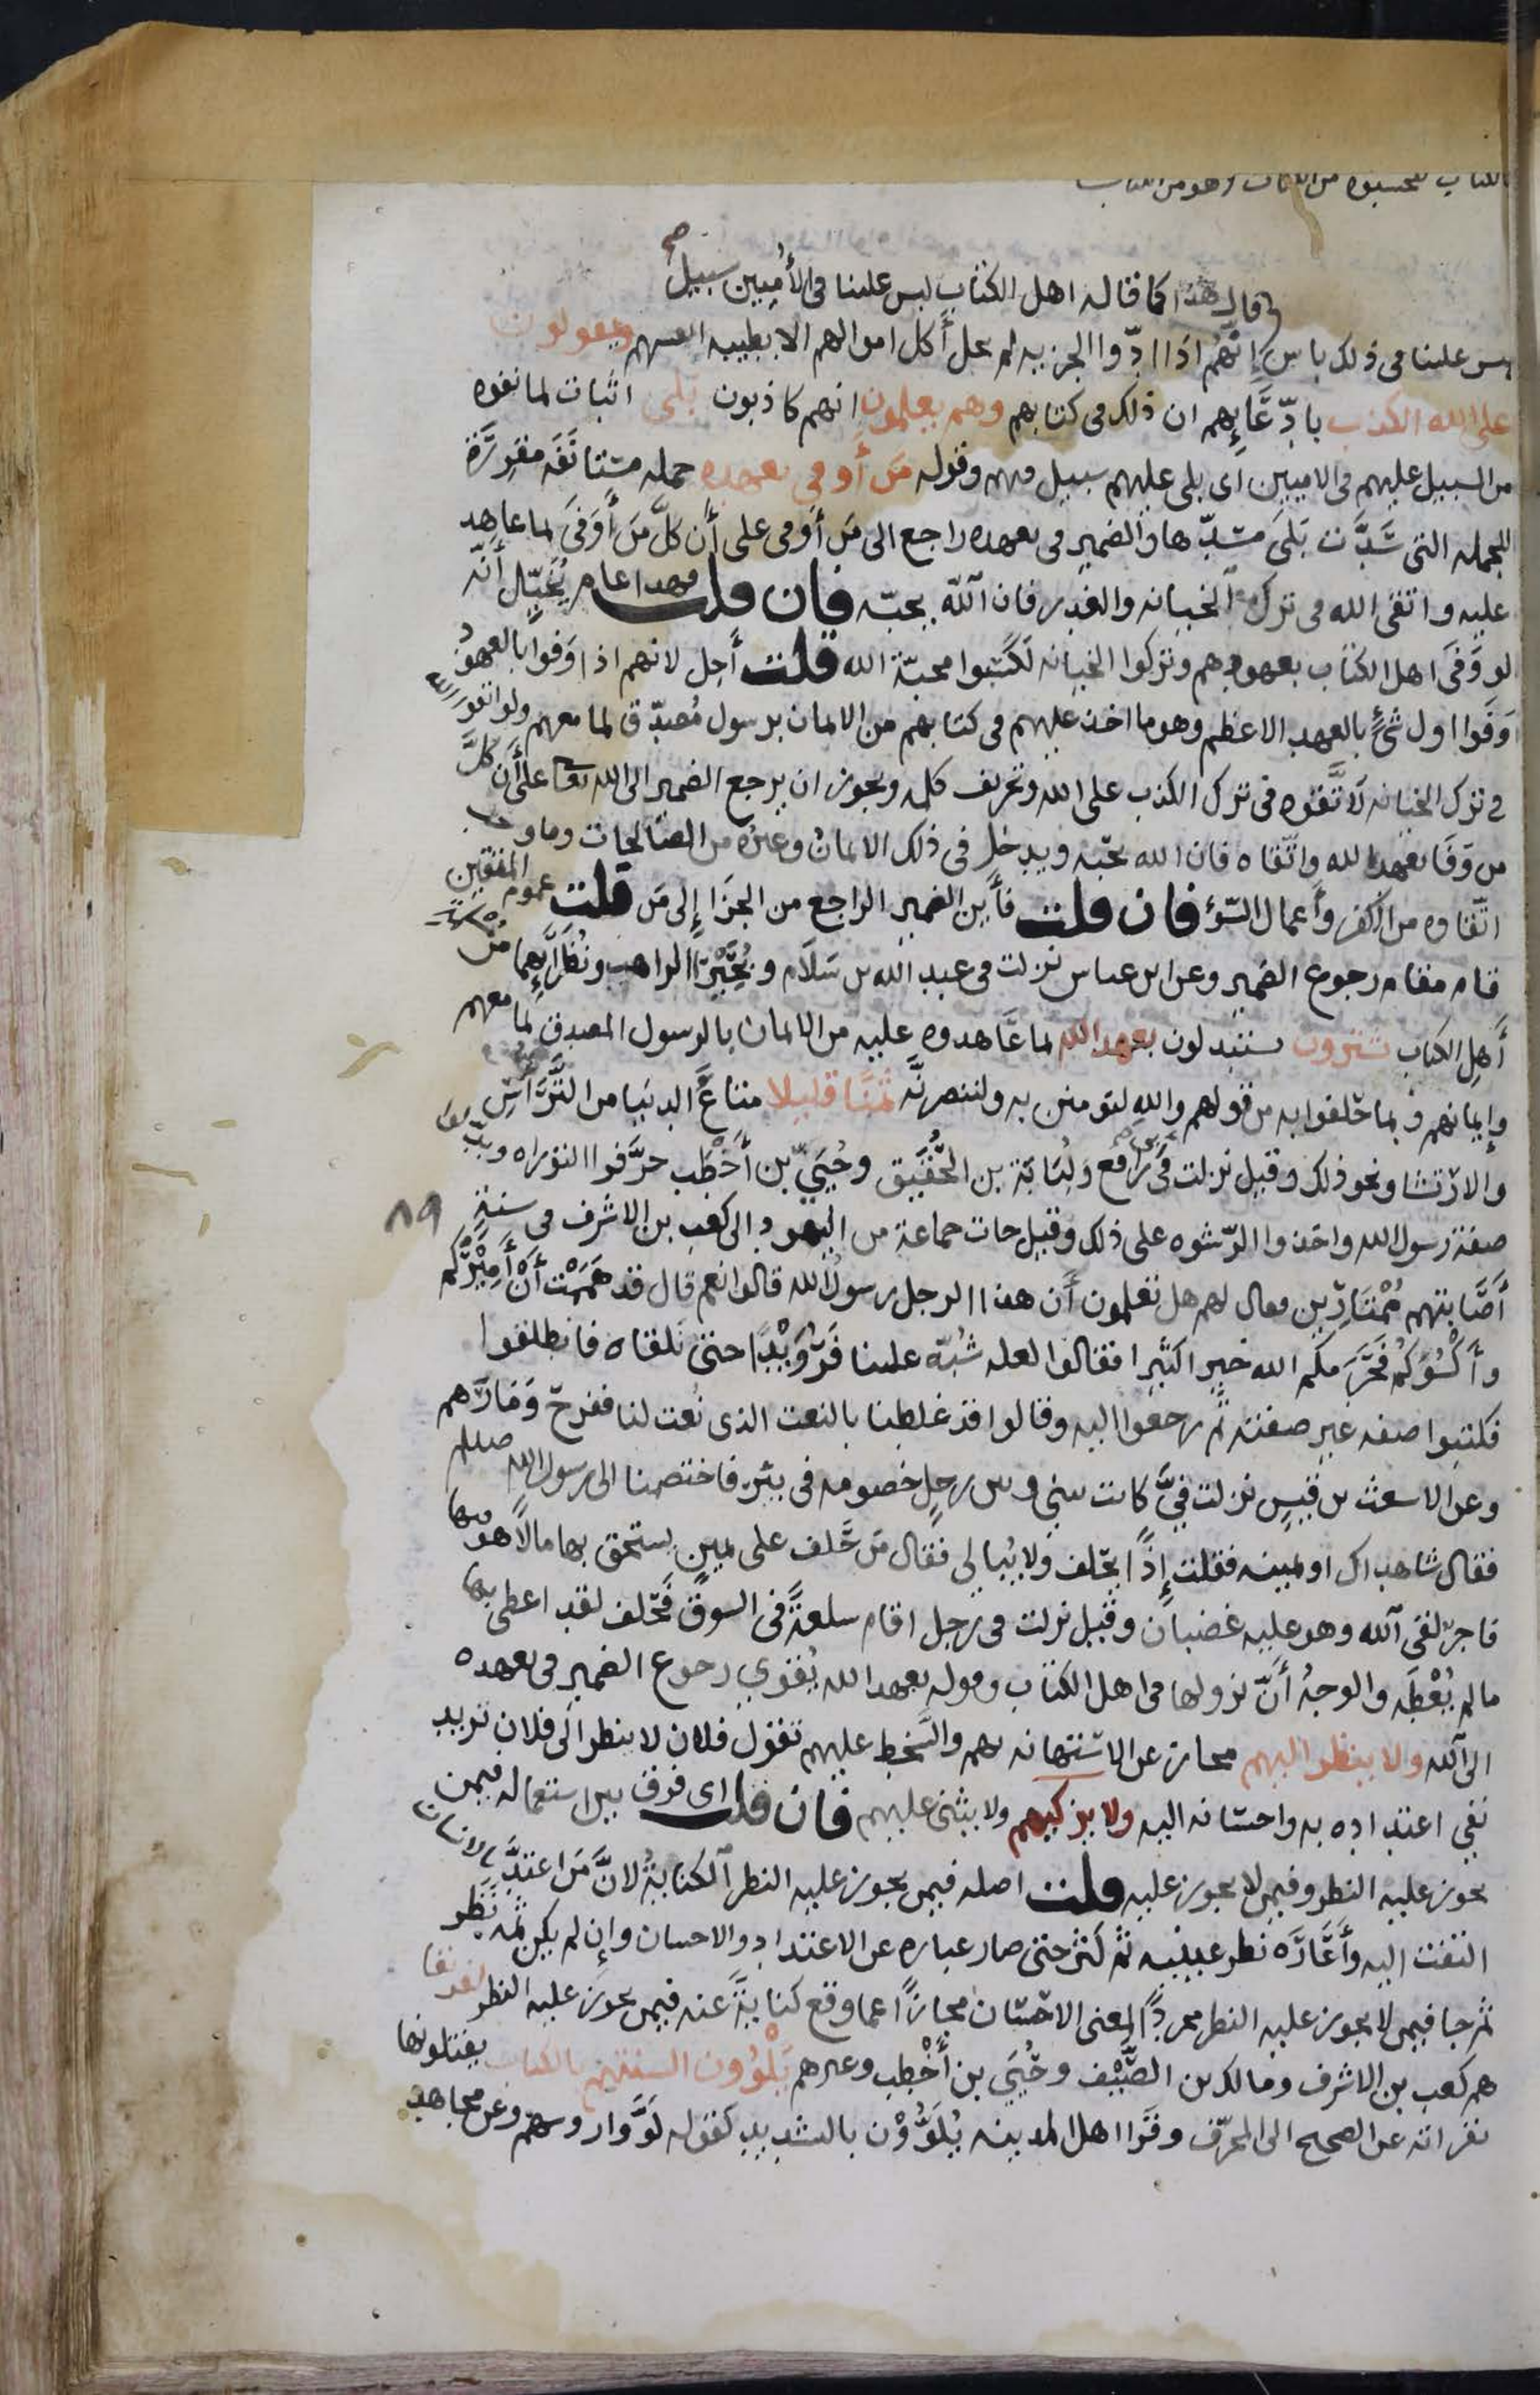 الكتاب لتحسبوه من الكتاب وما هو من الكتاب
قال هذا كما قاله اهل الكتاب ليس علينا فى الأُمّيين سبيل صح
ليس علينا فى ذلك باس إنّهُم اذا ادّوا الجزيه لم يحل أكل اموالهم الا بطيبه انفسهم ويقولون
على الله الكذب بادّعَائِهِم ان ذلك فى كتابهم وهم يعلمون انهم كاذبون بلى اثبات لما نفوه
من السبيل عليهم فى الاميين اى بلى عليهم سبيل فيهم وقوله مَن أَوفى بعهده جمله مستانَفَه مقرِّرَة
للجمله التى سَدَّت بَلَى مسَدّها والضمير فى بعهده راجع الى مَن أَوفى على أَن كلَّ مَن أَوفَى لما عاهد
عليه واتقى الله فى ترك الخيانه والغدر فان اللّه يحبّه فان قلت فهذا عام يُخَيِّل أنّه
لو وَفَى اهل الكتاب بعهودهم وتركوا الخيانه لكَسَبوا محبّة الله قلت أجل لانهم اذا وَفَوا بالعهود
وَفَوا اول شَىءٍ بالعهد الاعظم وهو ما اخذ عليهم فى كتابهم من الايمان برسول مُصدّق لما معهم ولو اتقوا الله
فى ترك الخيانه لاَتَّقَوه فى ترك الكذب على الله وتحريف كلمه ويجوز ان يرجع الضمير الى الله تعا على أَن كلَّ
من وَفَا بعهد الله واتّقاه فان الله يحبّه ويدخل فى ذلك الايمان وغيره من الصالحات وما وجب
اتّقاوه من الكفر وأَعمال السّوء فان قلت فأَين الضمير الراجع من الجزَا إِلى مَن قلت عموم المتقين
قام مقام رجوع الضمير وعن ابن عباس نزلت فى عبد الله بن سَلاَم وبُحَيْرَا الراهب ونُظَرَائِهِما من
أَهل الكتاب يشترون يستبدلون بعهد الله لما عَاهدوه عليه من الايمان بالرسول المصدق لما معهم
وإيمانهم وبما حَلفوا به من قولهم والله لنومنن به ولننصرنّه ثمَنًا قليلا متاعَ الدنيا من التَّرَؤُّسِ
والارْتشا ونحو ذلك وقيل نزلت فى ابى رافع ولُبَابَة بن الحُقَيق وحُيَىّ بن أَخْطَب حرَّفوا التوراه وبدّلوا
صفة رسول الله واخذوا الرّشوه على ذلك وقيل جات جماعة من اليهود الى كعب بن الاشرف فى سنةٍ
أَصَابتهم مُمْتَارِين فقال لهم هل تعلمون أَن هذا الرجل رسولُ الله قالوا نعم قال قد هَمَمْت أَنْ أَمِيْرَكُم
وأَكْسُوَكُمْ فحَرَمَكُم الله خيرا كثيرا فقالوا لعله شُبّه علينا فَرُوَيْدًا حتى نلقاه فانطلقوا
فكتبوا صفه غير صفته ثم رجعوا اليه وقالوا قد غلطنا بالنعت الذى نُعت لنا ففرح ومَارَهم
وعن الاشعث بن قيسٍ نزلت فِىَّ كانت بينى وبين رجلٍ خصومه فى بئر فاختصمنا الى رسول الله صلعم
فقال شاهداك او يمينه فقلت إِذًا يحلف ولا يُبالى فقال مَن حَلف على يمين يستحق بها مالًا هو فيها
فاجر لقى الله وهو عليه غضبان وقيل نزلت فى رجل اقام سلعةً فى السوق فحَلف لقد اعطى بها
ما لم يُعْطَه والوجهُ أَنَّ نزولها فى اهل الكتاب وقوله بعهد الله يُقوِّى رجوع الضمير فى بعهده
الى الله ولا ينظر اليهم مجاز عن الاستهانه بهم والسَّخط عليهم تقول فلان لا ينظر الى فلان تريد
نفى اعتداده به واحسانه اليه ولا يزكيهم ولا يثنى عليهم فان قلت اى فرق بين استعماله فيمن
يجوز عليه النظر وفيمن لا يجوز عليه قلت اصله فيمن يجوز عليه النظر الكنايةُ لانَّ مَن اعتدَّ بالانسان
التفت اليه وأَعَارَه نظر عينيه ثم كثر حتى صار عباره عن الاعتداد والاحسان وإِن لم يكن ثَمَّه نَظر
ثم جا فيمن لا يجوز عليه النظر مجردًا لمعنى الاحسان مجازًا عما وقع كنايةً عنه فيمن يجوز عليه النظر لفريقا
هم كعب بن الاشرف ومالك بن الصَّيْف وحُيَى بن أَخْطب وغيرهم يَلْوُون السنتهم بالكتاب يفتلونها
بقراته عن الصحيح الى المحرّف وقَرَا اهل المدينه يُلَوُّوْن بالتشديد كقوله لَوَّوا روسهم وعن مجاهد
٨٩